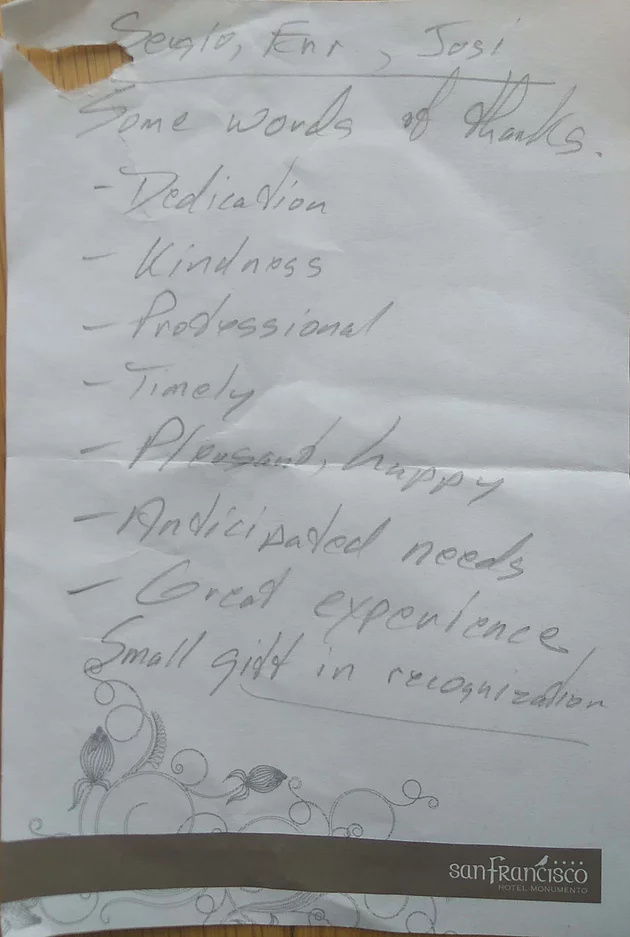 Sergio, Enr , Josi
Some words of thanks.
- Dedication
- Kindness
- Professional
- Timely
- Pleasant, happy
- Anticipated needs
- Great experience
Small gift in recognization
sanfrancisco
HOTEL MONUMENTO